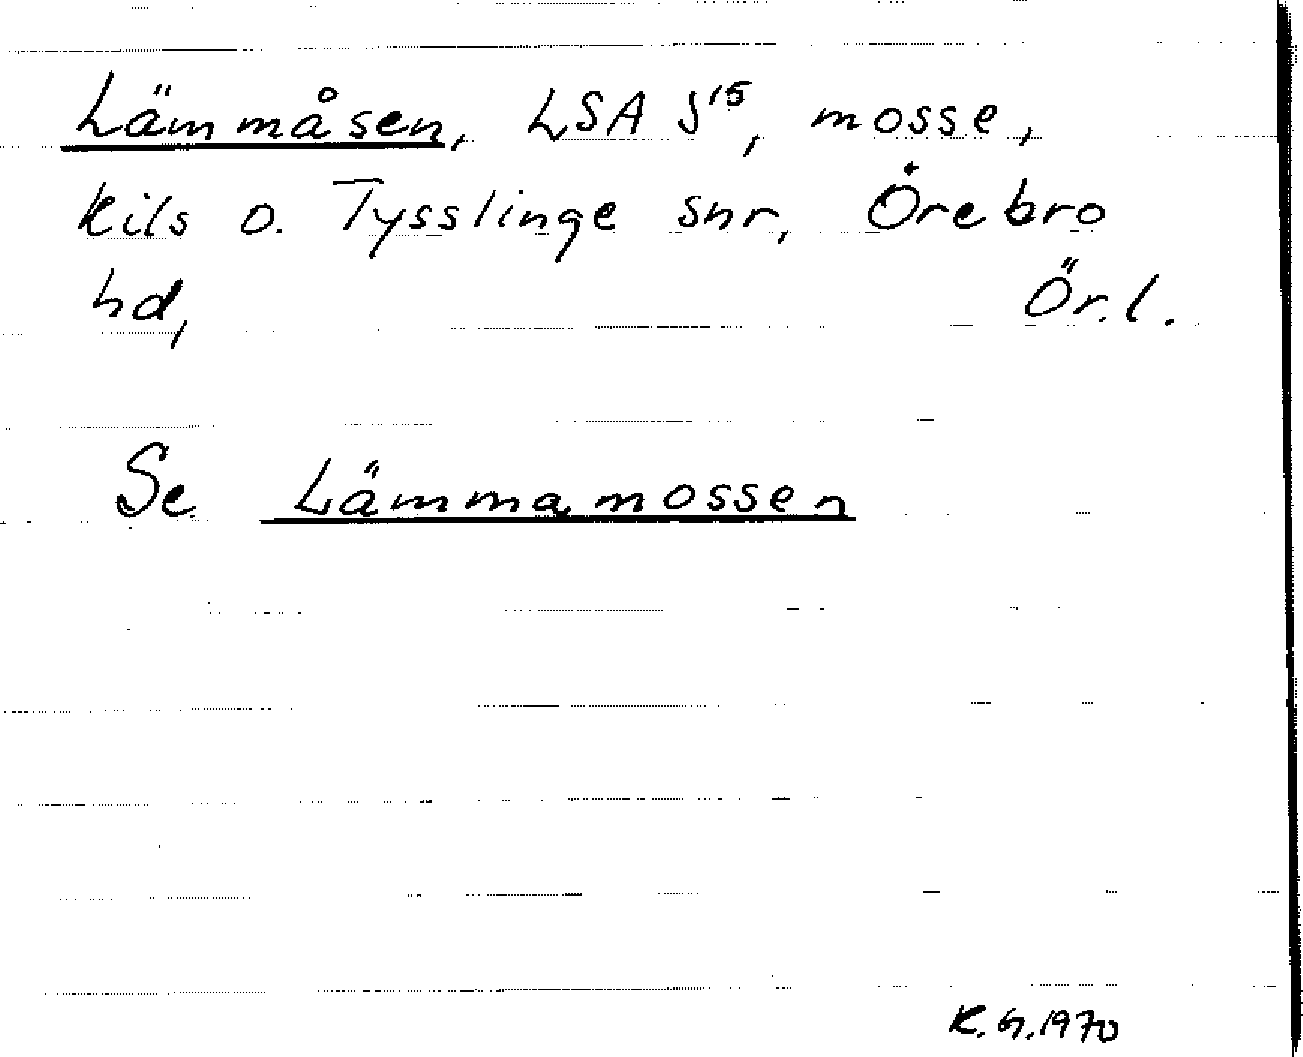 Lämmåsen, LSA S¹⁵, mosse,
Kils o. Tysslinge snr, Örebro
hd, Ör.l.
Se Lämmamossen
K.G.1970